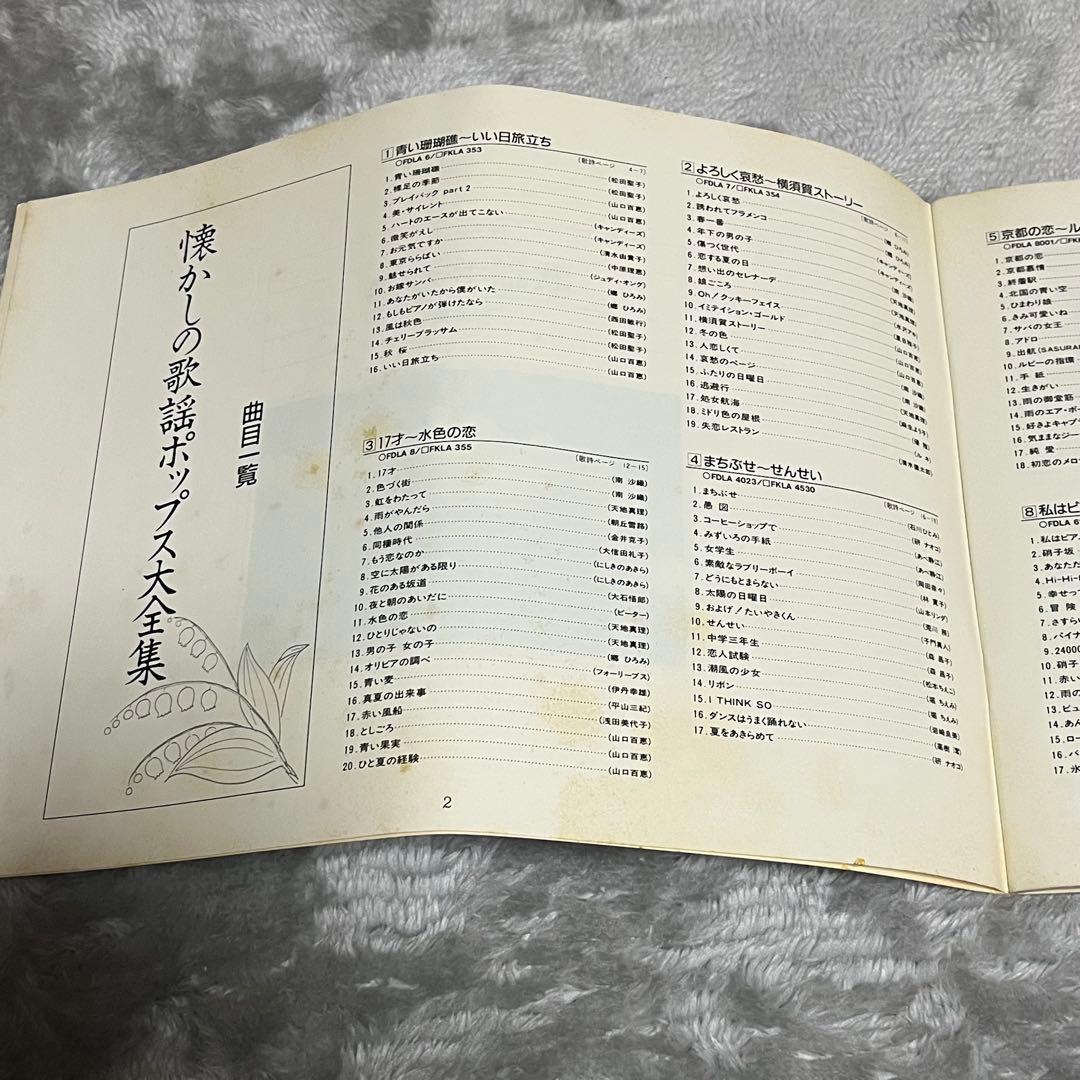 懐かしの歌謡ポップス大全集
曲目一覧
1 青い珊瑚礁〜いい日旅立ち
○FDLA 6/□FKLA 353
〔歌詩ページ 4−7〕
1. 青い珊瑚礁 (松田聖子)
2. 裸足の季節 (松田聖子)
3. プレイバック part 2 (山口百恵)
4. 美・サイレント (山口百恵)
5. ハートのエースが出てこない (キャンディーズ)
6. 微笑がえし (キャンディーズ)
7. お元気ですか (清水由貴子)
8. 東京ららばい (中原理恵)
9. 魅せられて (ジュディ・オング)
10. お嫁サンバ (郷 ひろみ)
11. あなたがいたから僕がいた (郷 ひろみ)
12. もしもピアノが弾けたなら (西田敏行)
13. 風は秋色 (松田聖子)
14. チェリーブラッサム (松田聖子)
15. 秋 桜 (山口百恵)
16. いい日旅立ち (山口百恵)
3 17才〜水色の恋
○FDLA 8/□FKLA 355
〔歌詩ページ 12−15〕
1. 17才 (南 沙織)
2. 色づく街 (南 沙織)
3. 虹をわたって (天地真理)
4. 雨がやんだら (朝丘雪路)
5. 他人の関係 (金井克子)
6. 同棲時代 (大信田礼子)
7. もう恋なのか (にしきのあきら)
8. 空に太陽がある限り (にしきのあきら)
9. 花のある坂道 (大石悟郎)
10. 夜と朝のあいだに (ピーター)
11. 水色の恋 (天地真理)
12. ひとりじゃないの (天地真理)
13. 男の子 女の子 (郷 ひろみ)
14. オリビアの調べ (フォーリーブス)
15. 青い麦 (伊丹幸雄)
16. 真夏の出来事 (平山三紀)
17. 赤い風船 (浅田美代子)
18. としごろ (山口百恵)
19. 青い果実 (山口百恵)
20. ひと夏の経験 (山口百恵)
2
2 よろしく哀愁〜横須賀ストーリー
○FDLA 7/□FKLA 354
1. よろしく哀愁 (郷 ひろみ)
2. 誘われてフラメンコ (郷 ひろみ)
3. 春一番 (キャンディーズ)
4. 年下の男の子 (キャンディーズ)
5. 傷つく世代 (南 沙織)
6. 恋する夏の日 (天地真理)
7. 想い出のセレナーデ (天地真理)
8. 娘ごころ (水沢アキ)
9. Oh! クッキーフェイス (夏目雅子)
10. イミテイション・ゴールド (山口百恵)
11. 横須賀ストーリー (山口百恵)
12. 冬の色 (山口百恵)
13. 人恋しくて (南 沙織)
14. 哀愁のページ (南 沙織)
15. ふたりの日曜日 (天地真理)
16. 逃避行 (麻生よう子)
17. 処女航海
18. ミドリ色の屋根 (ルネ)
19. 失恋レストラン (清水健太郎)
4 まちぶせ〜せんせい
○FDLA 4023/□FKLA 4530
〔歌詩ページ 16−19〕
1. まちぶせ (石川ひとみ)
2. 愚 図 (研 ナオコ)
3. コーヒーショップで (あべ静江)
4. みずいろの手紙 (あべ静江)
5. 女学生
6. 素敵なラブリーボーイ (林 寛子)
7. どうにもとまらない (山本リンダ)
8. 太陽の日曜日
9. およげ! たいやきくん (子門真人)
10. せんせい (森 昌子)
11. 中学三年生 (森 昌子)
12. 恋人試験 (松本ちえこ)
13. 潮風の少女 (堀 ちえみ)
14. リボン
15. I THINK SO (岩崎良美)
16. ダンスはうまく踊れない (高樹 澪)
17. 夏をあきらめて (研 ナオコ)
5 京都の恋〜ル
○FDLA 8001/□FK
1. 京都の恋
2. 京都慕情
3. 終着駅
4. 北国の青い空
5. ひまわり娘
6. きみ可愛いね
7. サバの女王
8. アドロ
9. 出航(SASURA
10. ルビーの指環
11. 手 紙
12. 生きがい
13. 雨の御堂筋
14. 雨のエア・ポ
15. 好きよキャプ
16. 気ままなジー
17. 純 愛
18. 初恋のメロ
8 私はピ
○FDLA 6
1. 私はピア
2. 硝子坂
3. あなた
4. Hi-Hi-H
5. 幸せっ
6. 冒 険
7. さすら
8. バイナ
9. 24000
10. 硝子
11. 赤い
12. 雨の
13. ビュ
14. あん
15. ロー
16. パ
17. 氷